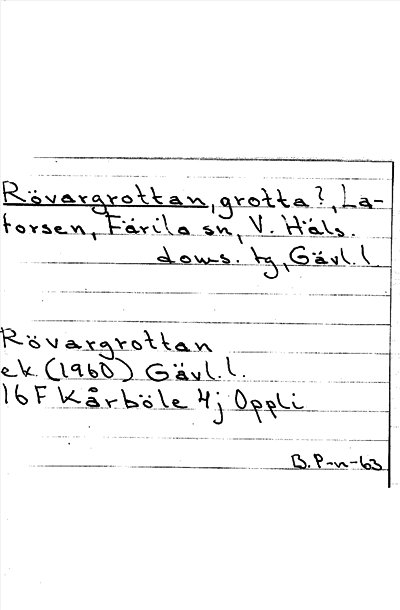 Rövargrottan, grotta?, La-
forsen, Färila sn, V. Häls.
doms. tg, Gävl. l
Rövargrottan
ek. (1960) Gävl. l.
16 F Kårböle 4j Oppli
B. P-n-63